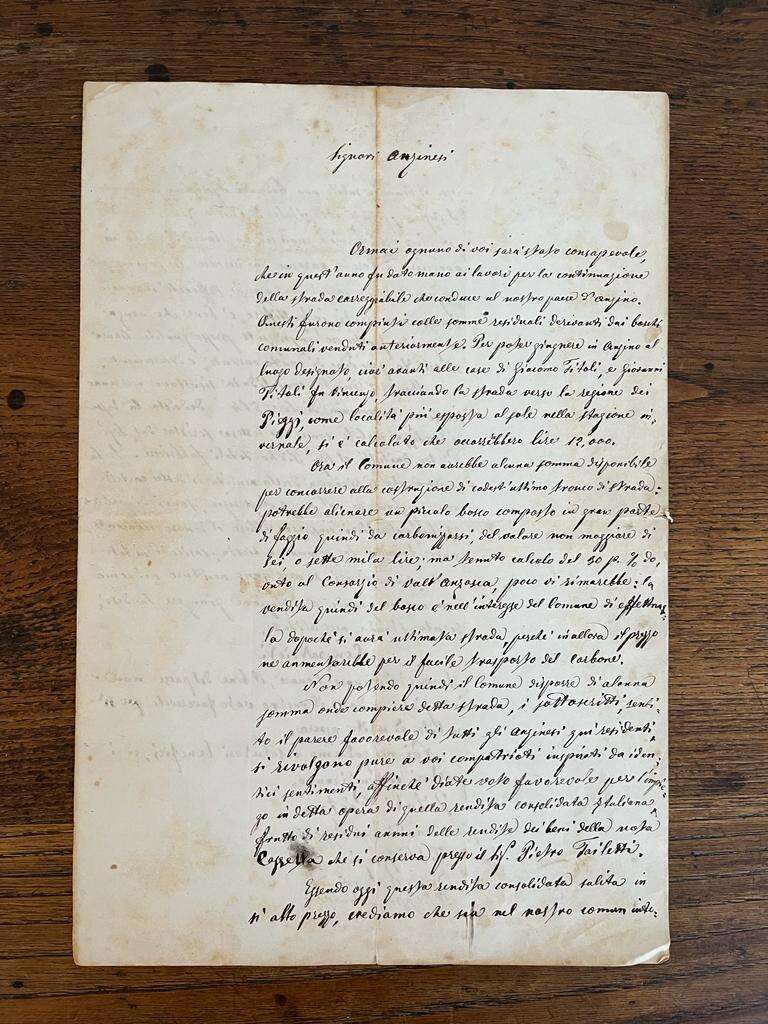 Signori Anzinesi
Ormai ognuno di voi sarà stato consapevole,
che in quest'anno fu dato mano ai lavori per la continuazione
della strada carreggiabile che conduce al nostro paese d'Anzino.
Questi furono compiuti colle somme residuali derivanti dai boschi
comunali venduti anteriormente. Per poter giugnere in Anzino al
luogo designato, cioè avanti alle case di Giacomo Titoli, e Giovanni
Titoli fu Vincenzo, tracciando la strada verso la regione dei
Pioggi, come località più esposta al sole nella stagione in:
vernale, si è calcolato che occorrebbero lire 12,000.
Ora il Comune non avrebbe alcuna somma disponibile
per concorrere alla costruzione di codest'ultimo tronco di strada:
potrebbe alienare un piccolo bosco composto in gran parte
di faggio quindi da carbonizzarsi, del valore non maggiore di
sei, o sette mila lire; ma tenuto calcolo del 50 p. % do,
vuto al Consorzio di Vall'Anzasca, poco vi rimarebbe: la
vendita quindi del bosco è nell'interesse del Comune di effettuar,
la dopoché si avrà ultimata strada, perchè in allora il prezzo
ne aumentarebbe per il facile trasporto del carbone.
Non potendo quindi il Comune disporre di alcuna
somma onde compiere detta strada, i sottoscritti senti:
to il parere favorevole di tutti gli Anzinesi qui residenti,
si rivolgono pure a voi compatrioti inspirati da iden,
tici sentimenti, affinchè diate voto favorevole per l'impie,
go in detta opera di quella rendita consolidata Italiana
frutto di residui annui delle rendite dei beni della nostra
che si conserva presso il Sig. Pietro Tailetti.
Essendo oggi questa rendita consolidata salita in
sì alto prezzo, crediamo che sia nel nostro comun inte: